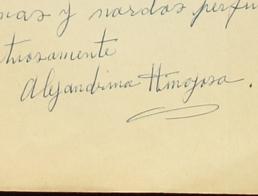 nas y nardos perfu
tuosamente
Alejandrina Hinojosa.